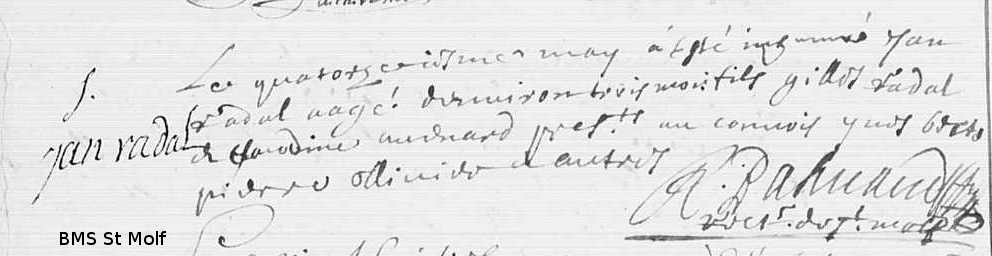 S.
Jan radal
Le quatorzeiesme may a esté inhumé Jan
radal aagé denviron trois mois fils gilles radal
et Claudine audnard pres.ts au convois yves
pierre ollivier et autres
R.
rect.r de st. molf
BMS St Molf